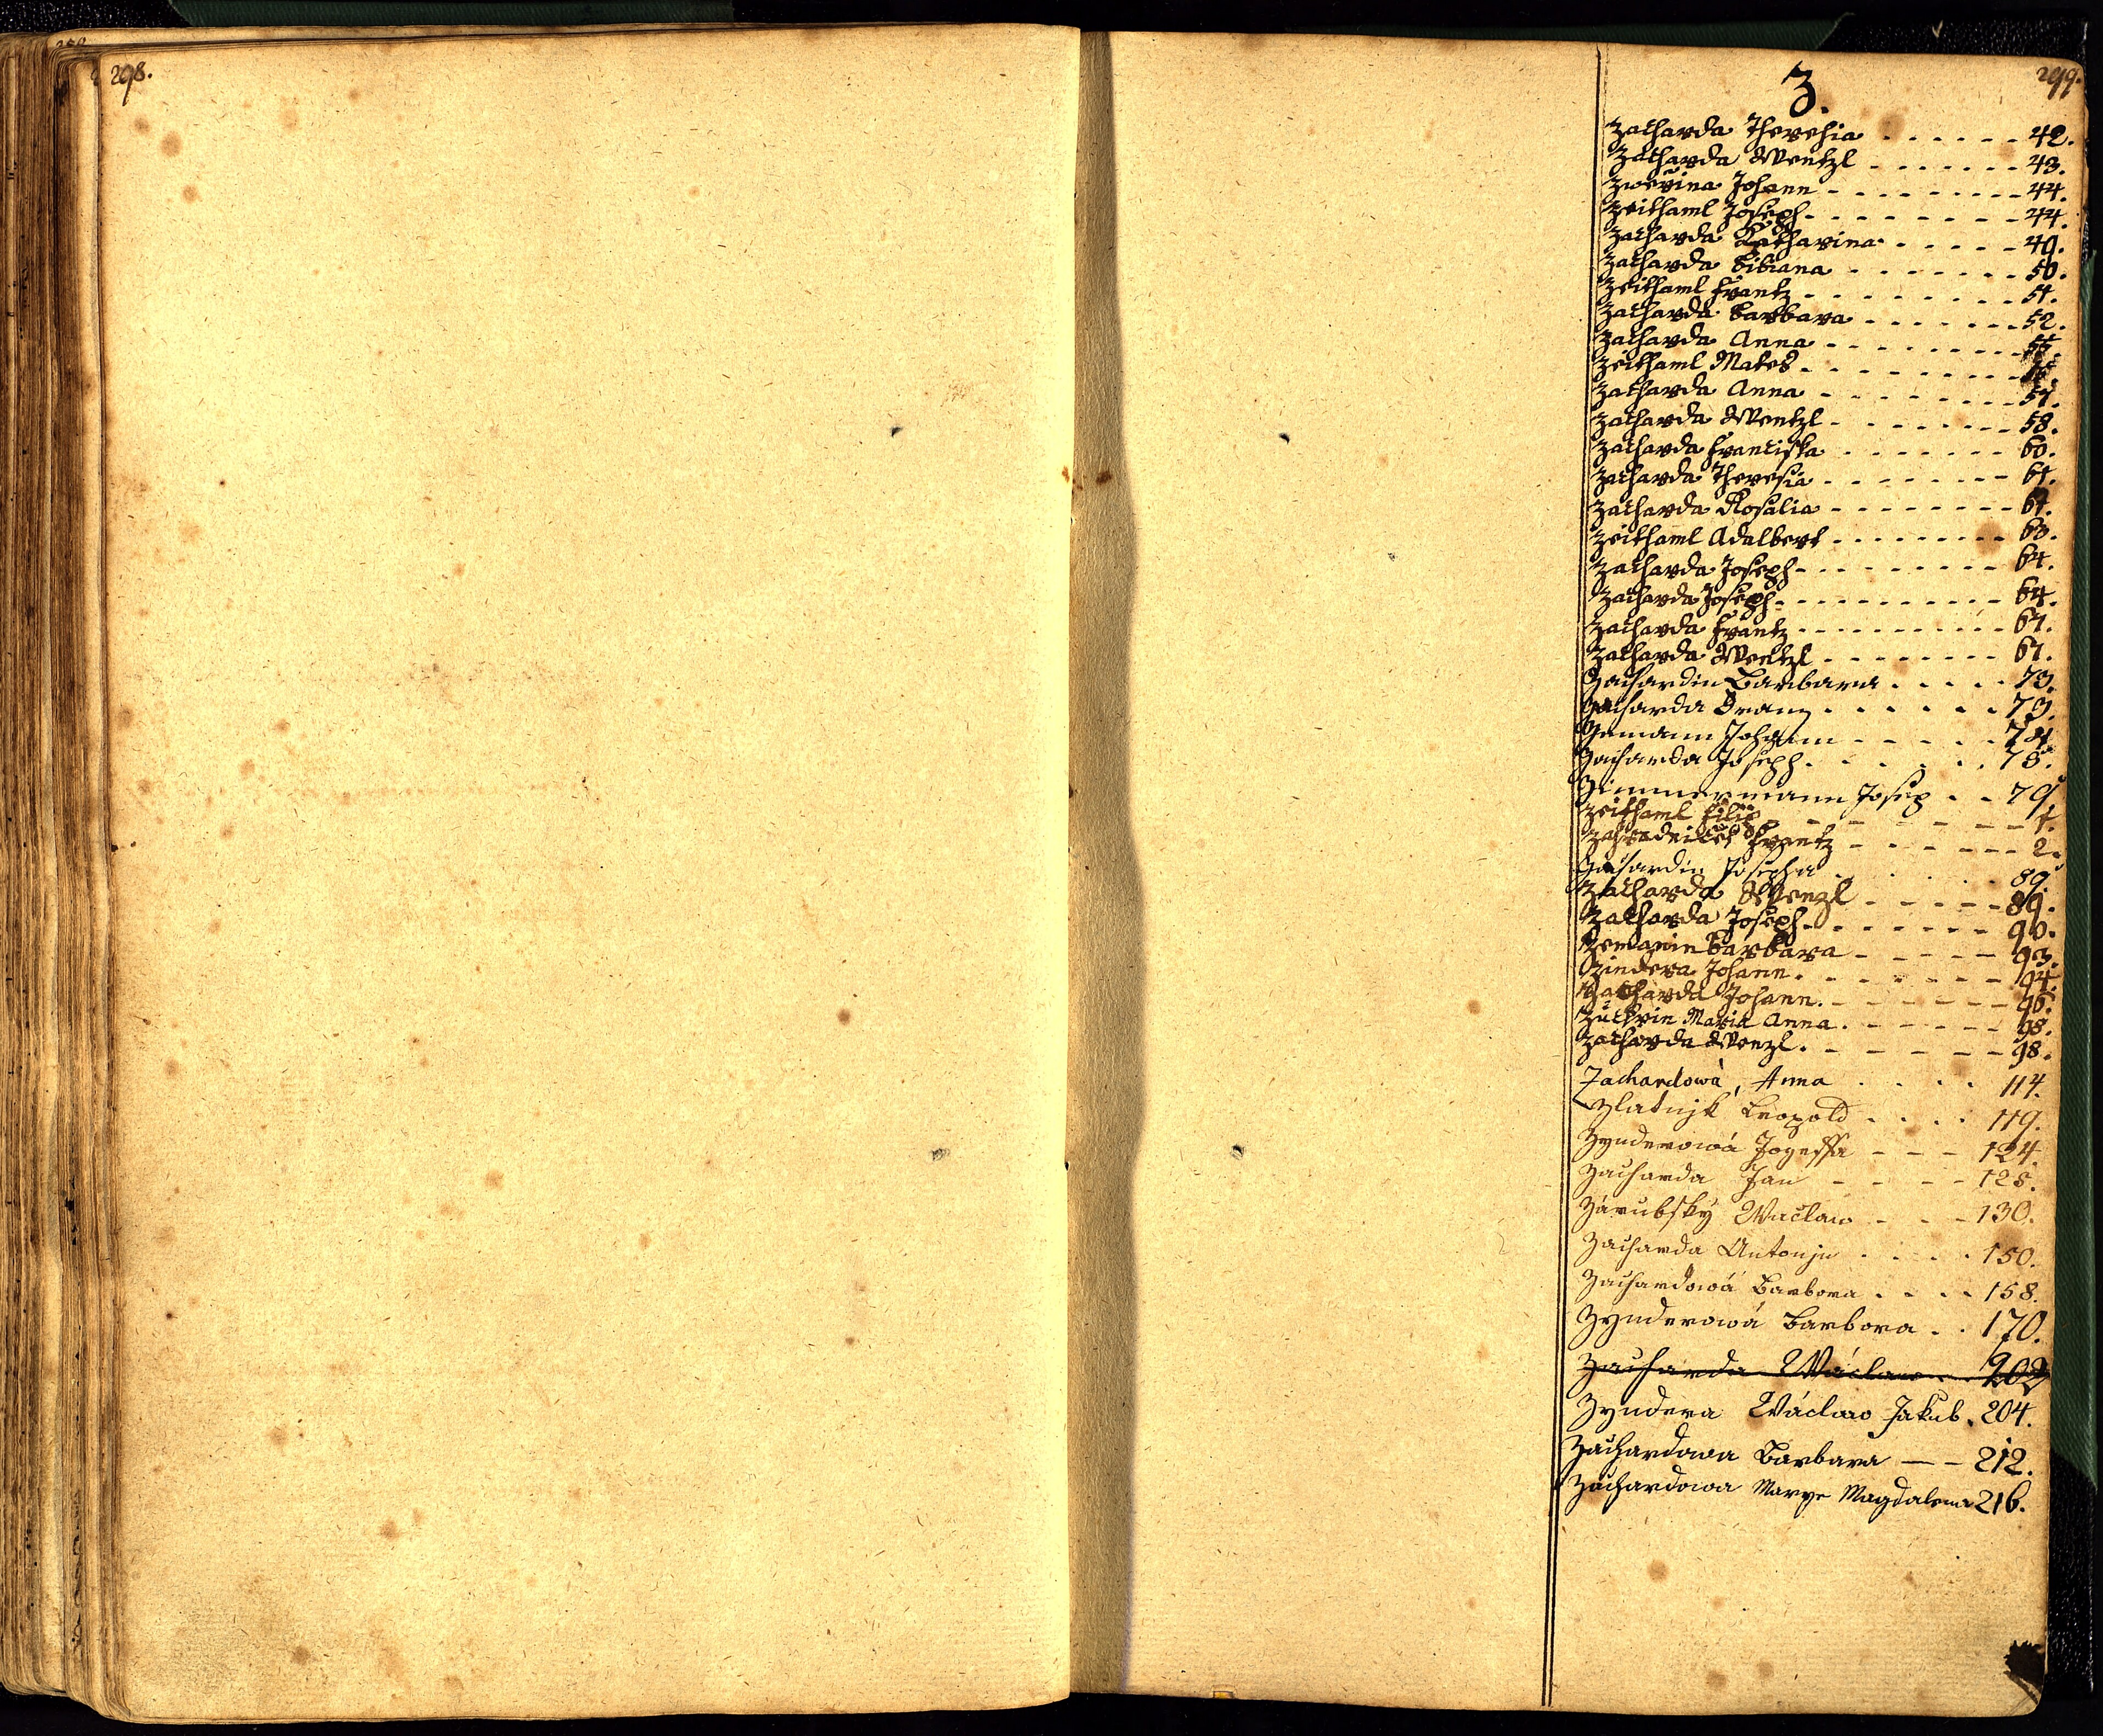 298.
299.
Z.
Zacharda Theresia - - - - - - 42.
Zacharda Wentzl - - - - - - - 43.
Zwěřina Johann - - - - - - - - - 44.
Zeithaml Joseph - - - - - - - - 44.
Zacharda Katharina - - - - - 49.
Zacharda Bibiana - - - - - - - 50.
Zeithaml Frantz - - - - - - - - 51.
Zacharda Barbara - - - - - - - 52.
Zacharda Anna - - - - - - - - 55.
Zeithaml Mates - - - - - - - - -
Zacharda Anna - - - - - - - - 57.
Zacharda Wentzl - - - - - - - - 58.
Zacharda Franciska - - - - - - - 60.
Zacharda Theresia - - - - - - - - 61.
Zacharda Rosalia - - - - - - - - 61.
Zeithaml Adalbert - - - - - - - - - 63.
Zacharda Joseph - - - - - - - - - 64.
Zacharda Joseph - - - - - - - - - - - 64.
Zacharda Frantz - - - - - - - - - - - 67.
Zacharda Wentzl - - - - - - - - 67.
Zachardin Barbara . . . . . 73.
Zacharda Franz . . . . . . 73.
Zemann Johann - - - - - 74.
Zacharda Joseph . . . . . . 78.
Zimmermann Josep - - 79.
Zeithaml Filip - - - - - - - 1.
Zahradniček Frantz - - - - - - - 2.
Zachardin Josepha . . . . . 89.
Zacharda Wenzl - - - - - 89.
Zacharda Joseph - - - - - - - 90.
Zemanin Barbara - - - - - 93.
Zindera Johann - - - - - - - 94.
Zacharda Johann. - - - - - - 96.
Zuckrin Maria Anna. - - - - - - 98.
Zacharda Wenzl. - - - - - - 98.
Zachardowá, Anna . . . . 114.
Zlatnjk Leopold . . . . 119.
Zynderowá Jozeffa - - - 124.
Zacharda Jan - - - - - 128.
Zárubský Waclaw - - - 130.
Zacharda Antonjn . . . . 150.
Zachardowá Barbora . . . . 158.
Zynderowá Barbora . . 170.
Zacharda Wáclaw . . 202
Zyndera Wáclaw Jakub . 204.
Zachardowa Barbara - - 212.
Zachardowa Marye Magdalena 216.